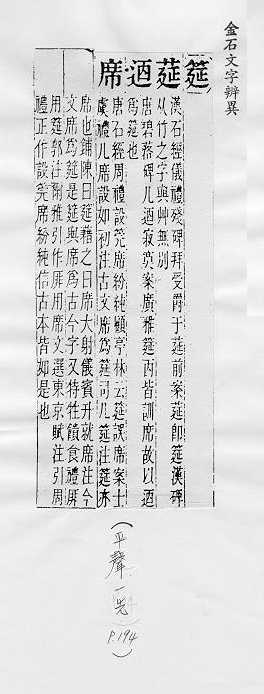 金石文字辨異
筵莚迺席
漢石經儀禮殘碑拜受爵于莚前案莚即筵漢碑
从竹之字與艸無別
唐碧落碑几迺寂莫案廣雅筵西皆訓席故以迺
為筵也
唐石經周禮設莞席紛純顧亭林云筵誤席案士
虞禮几席設如初注古文席為筵司几筵注筵亦
席也鋪陳曰筵藉之曰席大射儀賓升就席注今
文席為筵是筵與席為古今字又特牲饋食禮厞
用筵郭注爾雅引作厞用席文選東京賦注引周
禮正作設莞席紛純信古本皆如是也
(平聲一先 P.194)